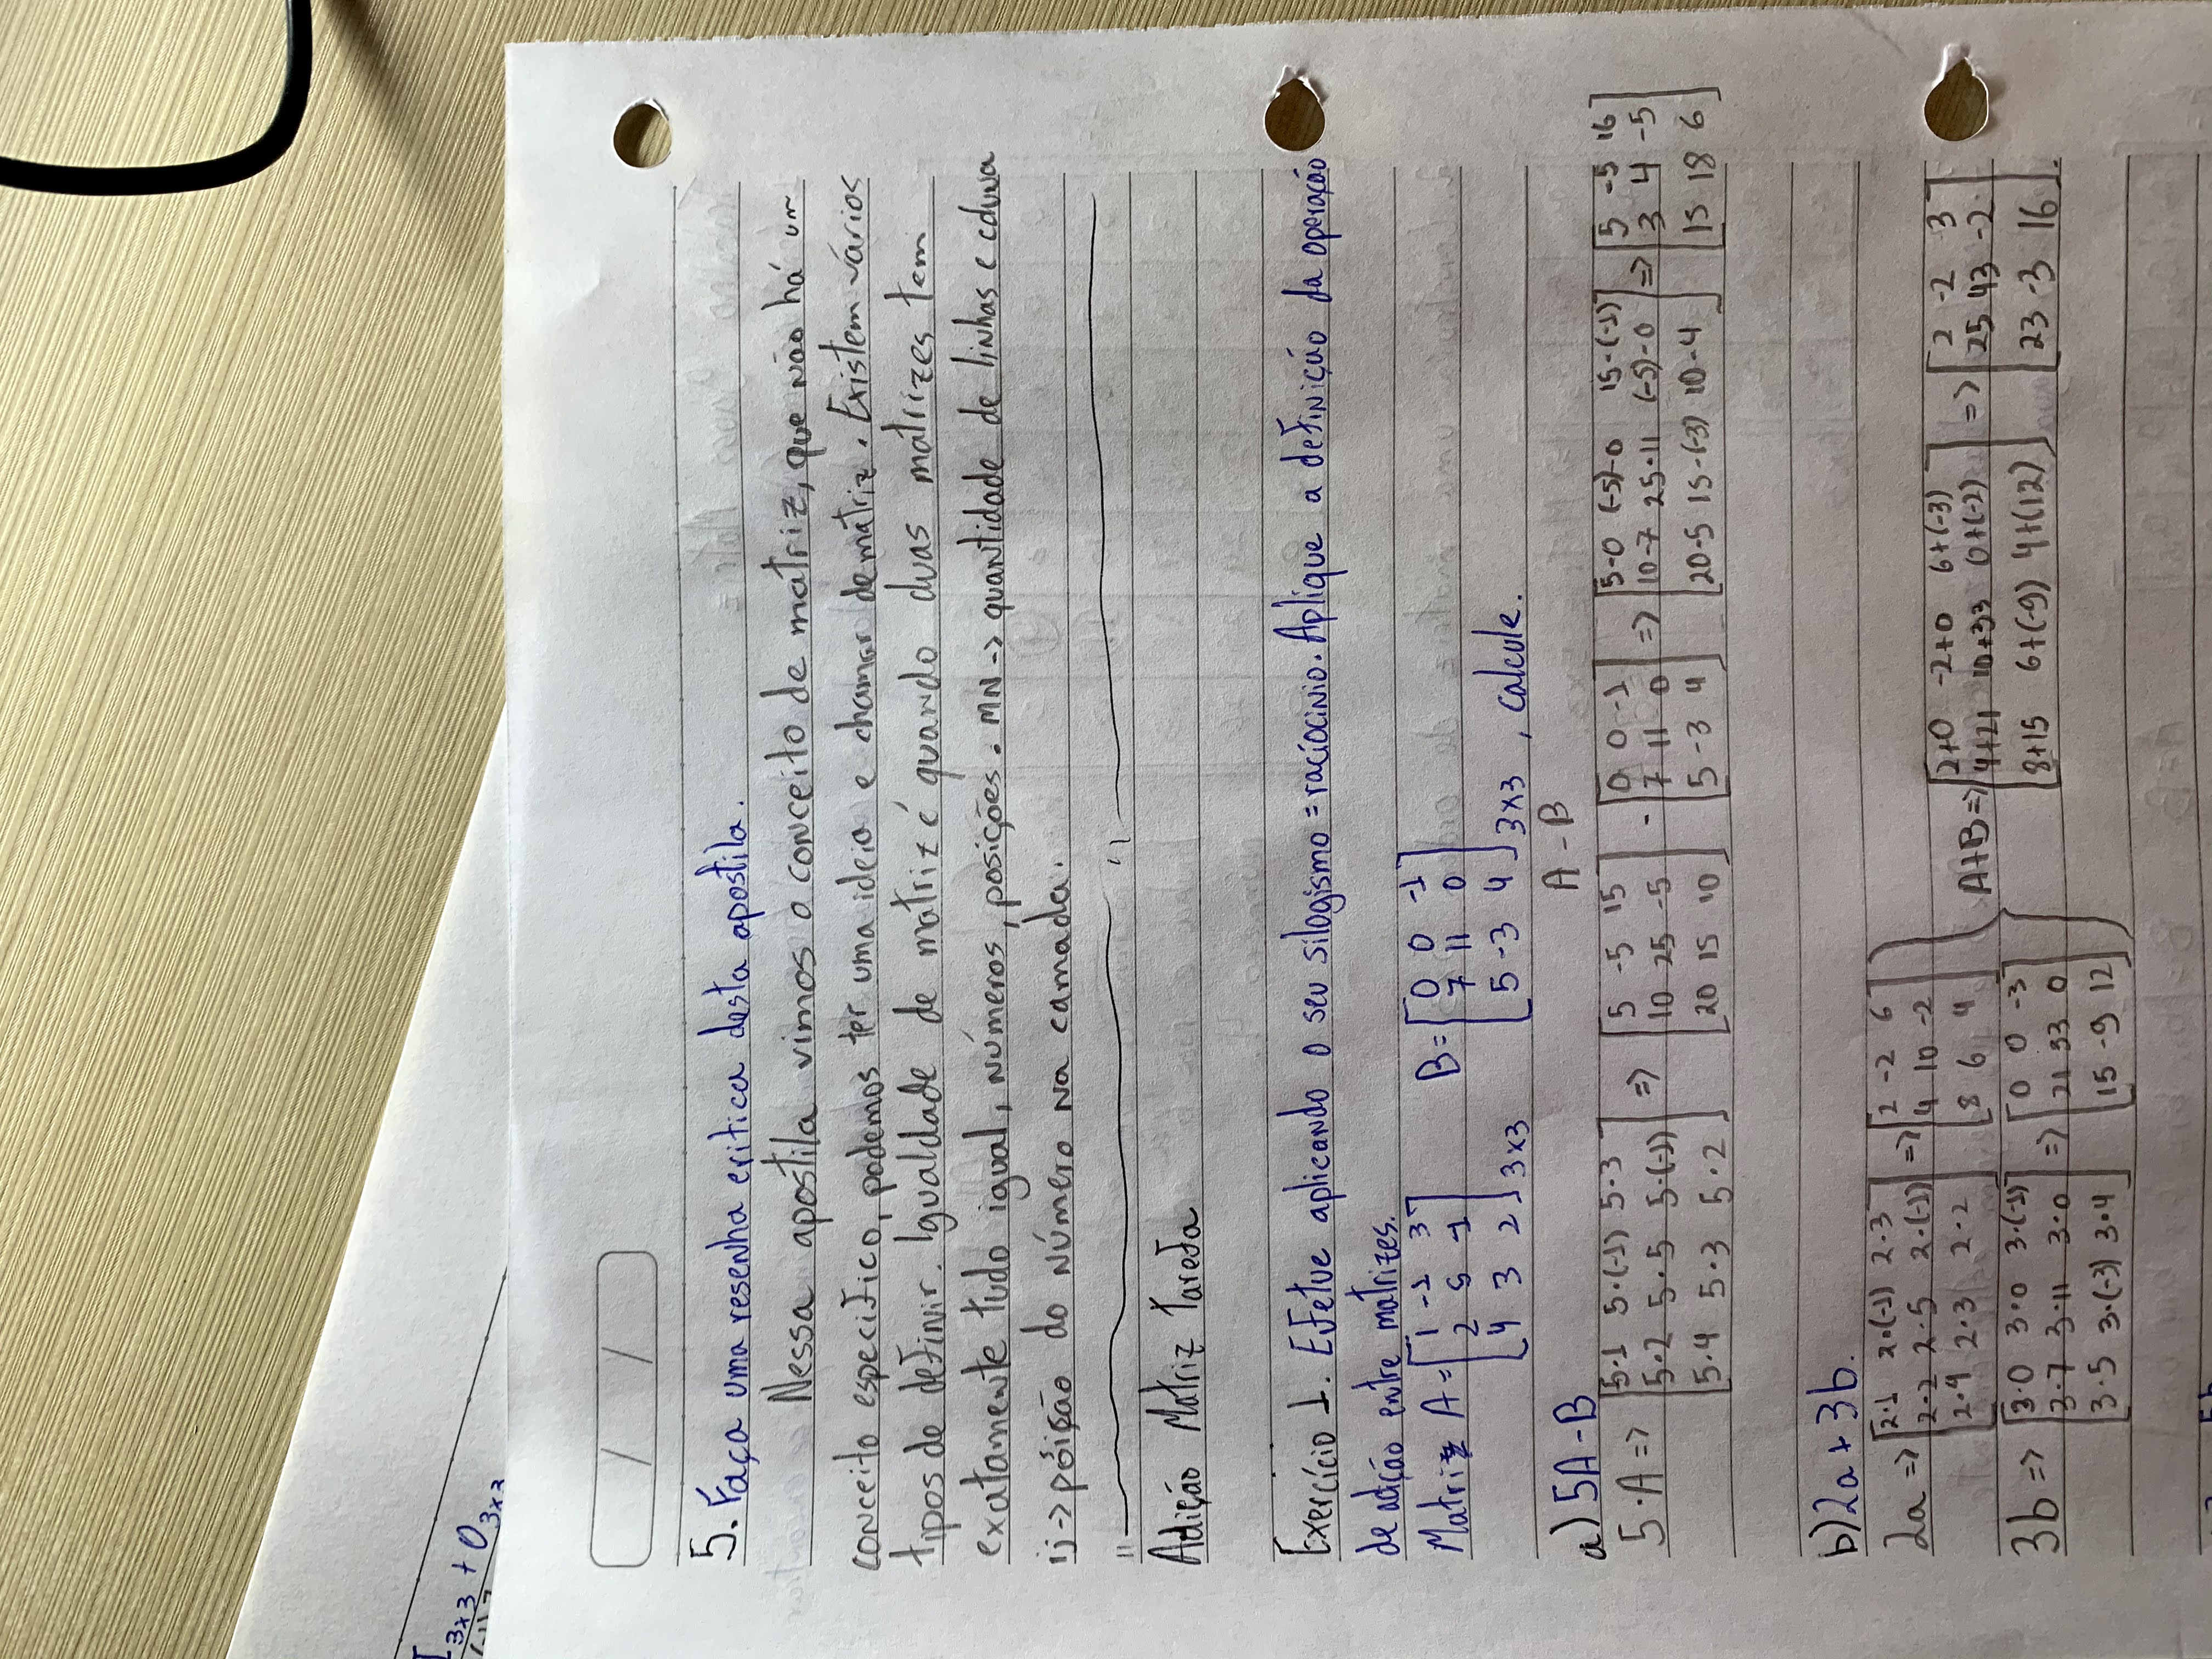 I3x3 + O3x3
/ /
5. Faça uma resenha critica desta apostila.
Nessa apostila vimos o conceito de matriz, que não há um
conceito especifico, podemos ter uma ideia e chamar de matriz. Existem vários
tipos de definir. Igualdade de matriz é quando duas matrizes tem
exatamente tudo igual, números, posições. MN -> quantidade de linhas e coluna
ij -> posição do número na camada.
Adição Matriz Tarefa
Exercício 1. Efetue aplicando o seu silogismo = raciocinio. Aplique a definição da operação
de adição entre matrizes.
Matriz A = [1 -1 3
2 5 -1
4 3 2]3x3 B = [0 0 -1
7 11 0
5 -3 4]3x3 , calcule.
a) 5A - B A - B
5·A => [5·1 5·(-1) 5·3
5·2 5·5 5·(-1)
5·4 5·3 5·2] => [5 -5 15
10 25 -5
20 15 10] - [0 0 -1
7 11 0
5 -3 4] => [5-0 (-5)-0 15-(-1)
10-7 25-11 (-5)-0
20-5 15-(-3) 10-4] => [5 -5 16
3 4 -5
15 18 6]
b) 2a + 3b.
2a => [2·1 2·(-1) 2·3
2·2 2·5 2·(-1)
2·4 2·3 2·2] => [2 -2 6
4 10 -2
8 6 4]
3b => [3·0 3·0 3·(-1)
3·7 3·11 3·0
3·5 3·(-3) 3·4] => [0 0 -3
21 33 0
15 -9 12]
A+B => [2+0 -2+0 6+(-3)
4+21 10+33 0+(-2)
8+15 6+(-9) 4+(12)] => [2 -2 3
25 43 -2
23 -3 16].